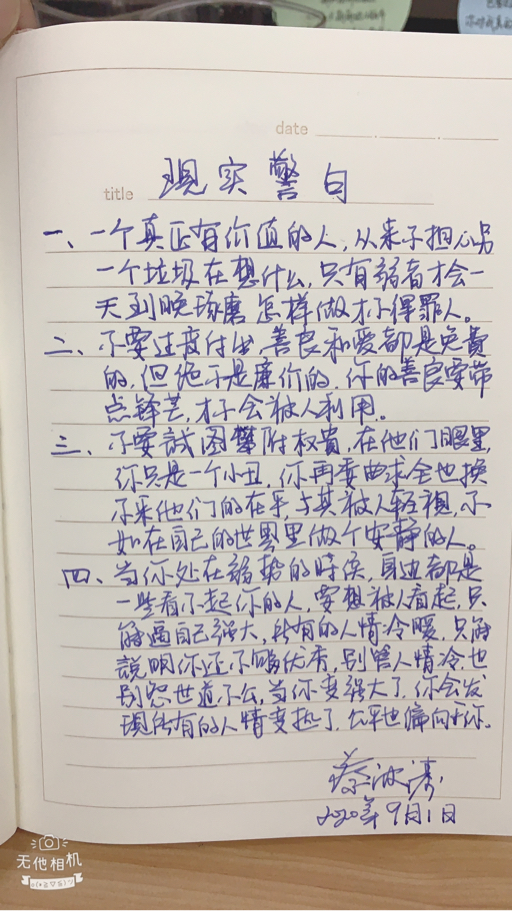 date
title 现实警句
一、一个真正有价值的人,从来不担心另
一个垃圾在想什么,只有弱者才会一
天到晚琢磨怎样做才不得罪人。
二、不要过度付出,善良和爱都是免費
的,但绝不是廉价的,你的善良要带
点锋芒,才不会被人利用。
三、不要試图攀附权貴,在他们眼里,
你只是一个小丑,你再委曲求全也换
不来他们的在乎,与其被人轻視,不
如在自己的世界里做个安静的人。
四、当你处在弱势的時侯,身边都是
一些看不起你的人,要想被人看起,只
能逼自己强大,所有的人情冷暖,只能
説明你还不够优秀,别管人情冷,也
别怨世道不公,当你变强大了,你会发
現所有的人情变热了,公平也偏向于你。
蔡波涛
2020年9月1日
无他相机